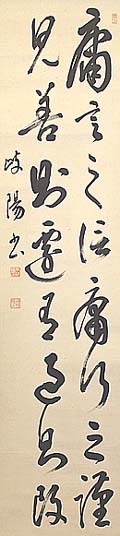 庸言之信庸行之謹
見善則遷有過則改
岐陽書